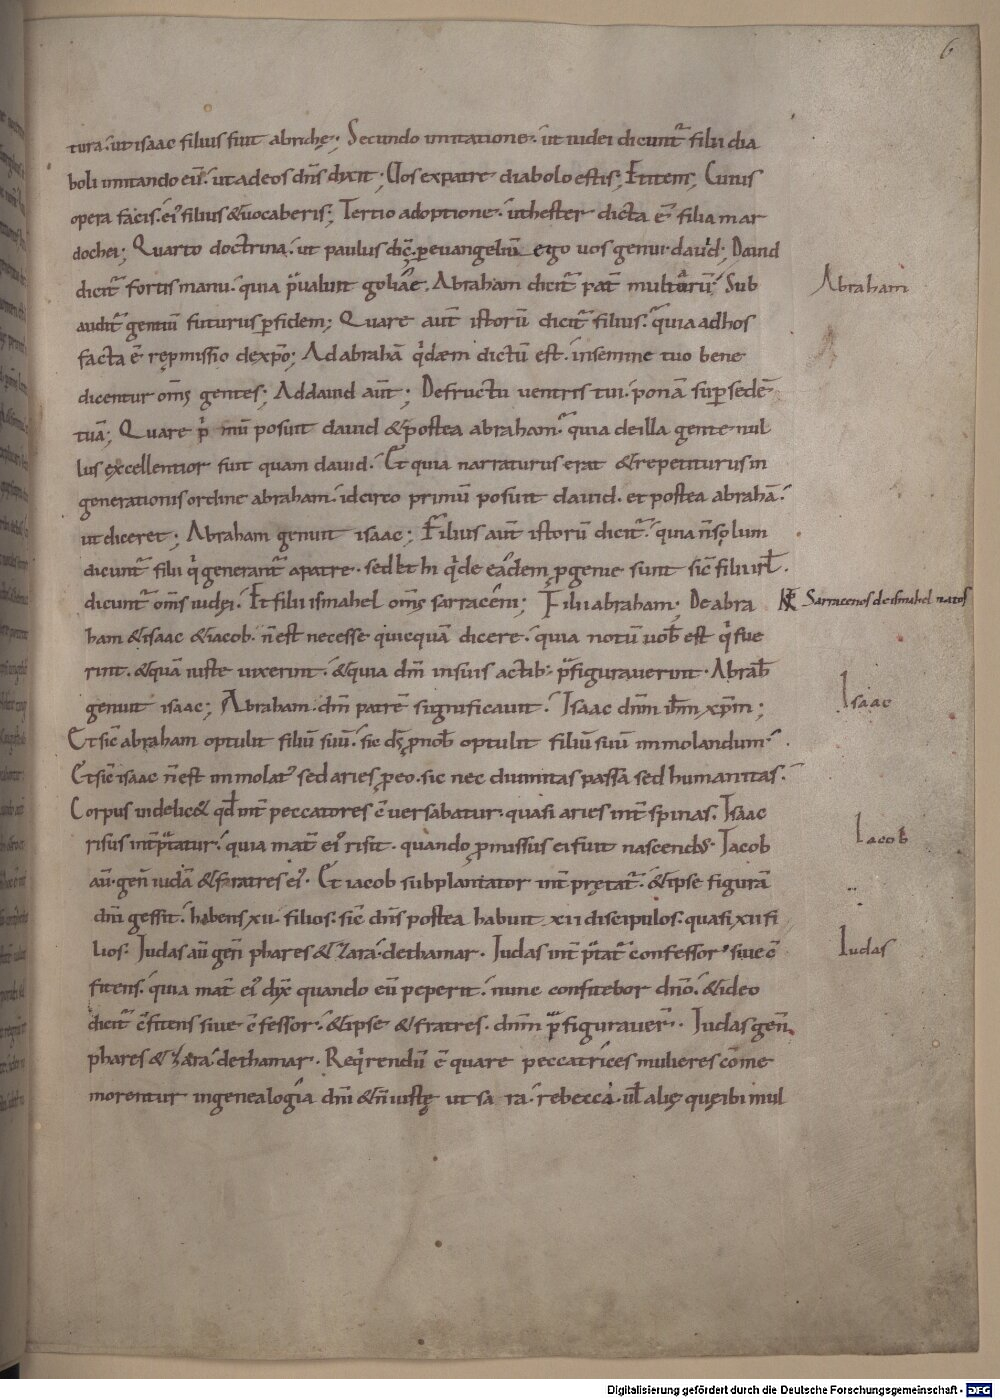 6
tura. ut isaac filius fuit abrahę; Secundo imitatione. ut iudei dicunt̄ filii dia
boli imitando eū. ut ad eos dn̄s dixit; Uos ex patre diabolo estis; Et item; Cuius
opera facis. ei᾽ filius & uocaberis; Tertio adoptione. ut hester dicta ē filia mar
dochei; Quarto doctrina. ut paulus dic̄. ꝑ euangeliū ego uos genui. dauid; Dauid
dicit̄ fortis manu. quia p̄ualuit goliae. Abraham dicit̄ pat̄ multarū. Sub
Abraham
audit̄ gentiū futurus ꝑ fidem; Quare aut̄ istorū dicit̄ filius. quia ad hos
facta ē repmissio de xp̄o; Ad abrahā q̇dem dictū est. in semine tuo bene
dicentur om̄s gentes; Ad dauid aut̄; De fructu uentris tui. ponā suꝑ sedē
tuā; Quare p̄mū posuit dauid & postea abraham. quia de illa gente nul
lus excellentior fuit quam dauid. Et quia narraturus erat & repetiturus in
generationis ordine abraham. idcirco primū posuit dauid. et postea abrahā.
ut diceret; Abraham genuit isaac; Filius aut̄ istorū dicit̄. quia n̄ solum
dicunt̄ filii q̇ generant̄ a patre. sed & hi q̇ de eadem ꝓgenie sunt sic̄ filii isrl̄.
dicunt̄ om̄s iudei. Et filii ismahel om̄s sarraceni; Filii abraham. De abra
Sarracenos de ismahel natos
ham & isaac & iacob. n̄ est necesse quicquā dicere. quia notū uob̄ est q̇ fue
runt. & quā iuste uixerunt. & quia dn̄m in suis actib; p̄figurauerunt. Abrah̄
genuit isaac; Abraham. dn̄m patrē significauit. Isaac dn̄m ih̄m xp̄m;
Isaac
Et sic̄ abraham optulit filiū suū. sic d̄s ꝓ nob̄ optulit filiū suū immolandum.
Et sic̄ isaac n̄ est immolat᾽ sed aries ꝓ eo. sic nec diuinitas passa sed humanitas.
Corpus uidelic& qd̄ int̄ peccatores c̄uersabatur. quasi aries int̄ spinas. Isaac
risus int̄p̄tatur. quia mat̄ ei᾽ risit. quando ꝓmissus ei fuit nascendus. Iacob
Iacob
aū. gen̄ iudā & fratres ei᾽. Et iacob subplantator int̄pretat̄. & ipse figurā
dn̄i gessit. habens xii. filios. sic̄ dn̄s postea habuit xii discipulos. quasi xii fi
lios. Iudas aū gen̄ phares & zara. de thamar. Iudas int̄p̄tat̄ confessor siue c̄
Iudas
fitens. quia mat̄ ei᾽ dix̄ quando eū peperit. nunc confitebor dn̄o. & ideo
dicit̄ c̄fitens siue c̄fessor. & ipse & fratres. dn̄m p̄figurauer̄. Iudas gen̄
phares & zara. de thamar. Req̇rendū ē quare peccatrices mulieres cōme
morentur in genealogia dn̄i & n̄ iustę ut sara. rebecca. ul̄ alię quę ibi mul
Digitalisierung gefördert durch die Deutsche Forschungsgemeinschaft - DFG